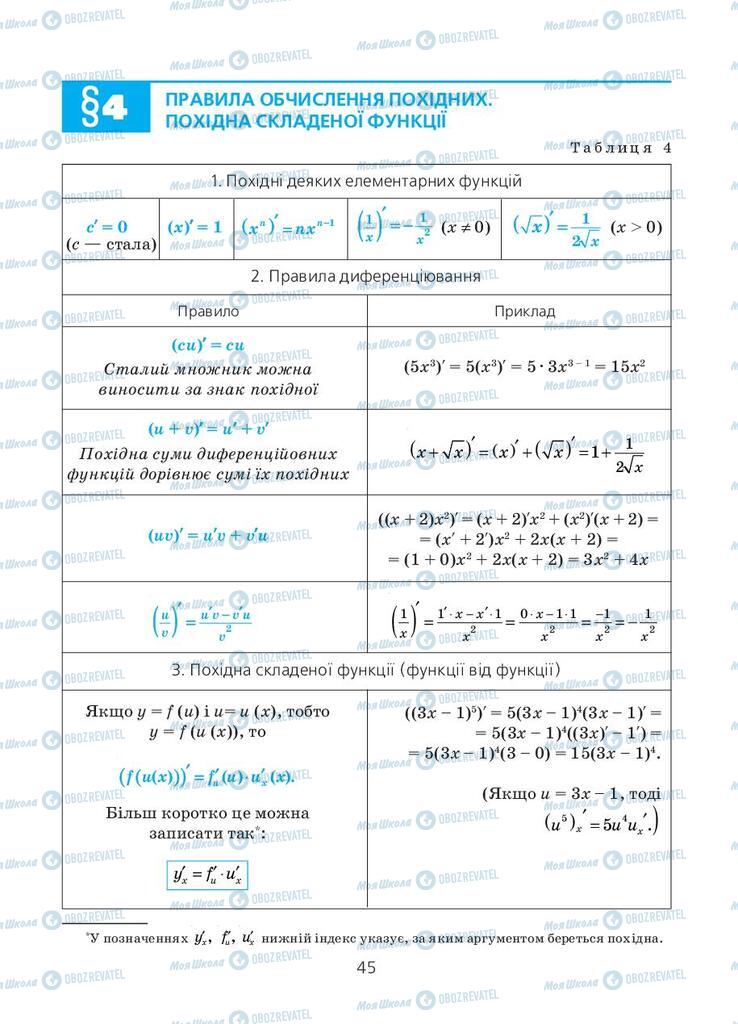 §4
ПРАВИЛА ОБЧИСЛЕННЯ ПОХІДНИХ.
ПОХІДНА СКЛАДЕНОЇ ФУНКЦІЇ
Таблиця 4
1. Похідні деяких елементарних функцій
c′ = 0
(c — стала)
(x)′ = 1
(xⁿ)′ = nxⁿ⁻¹
(1/x)′ = −1/x² (x ≠ 0)
(√x)′ = 1/(2√x) (x > 0)
2. Правила диференціювання
Правило
Приклад
(cu)′ = cu
Сталий множник можна
виносити за знак похідної
(5x³)′ = 5(x³)′ = 5 · 3x³⁻¹ = 15x²
(u + v)′ = u′ + v′
Похідна суми диференційовних
функцій дорівнює сумі їх похідних
(x + √x)′ = (x)′ + (√x)′ = 1 + 1/(2√x)
(uv)′ = u′v + v′u
((x + 2)x²)′ = (x + 2)′x² + (x²)′(x + 2) =
= (x′ + 2′)x² + 2x(x + 2) =
= (1 + 0)x² + 2x(x + 2) = 3x² + 4x
(u/v)′ = (u′v − v′u)/v²
(1/x)′ = (1′ · x − x′ · 1)/x² = (0 · x − 1 · 1)/x² = −1/x² = −1/x²
3. Похідна складеної функції (функції від функції)
Якщо y = f (u) і u= u (x), тобто
y = f (u (x)), то
(f(u(x)))′ = f′ᵤ(u) · u′ₓ(x).
Більш коротко це можна
записати так*:
y′ₓ = f′ᵤ · u′ₓ
((3x − 1)⁵)′ = 5(3x − 1)⁴(3x − 1)′ =
= 5(3x − 1)⁴((3x)′ − 1′) =
= 5(3x − 1)⁴(3 − 0) = 15(3x − 1)⁴.
(Якщо u = 3x − 1, тоді
(u⁵)ₓ′ = 5u⁴uₓ′.)
*У позначеннях y′ₓ, f′ᵤ, u′ₓ нижній індекс указує, за яким аргументом береться похідна.
45
Моя Школа OBOZREVATEL